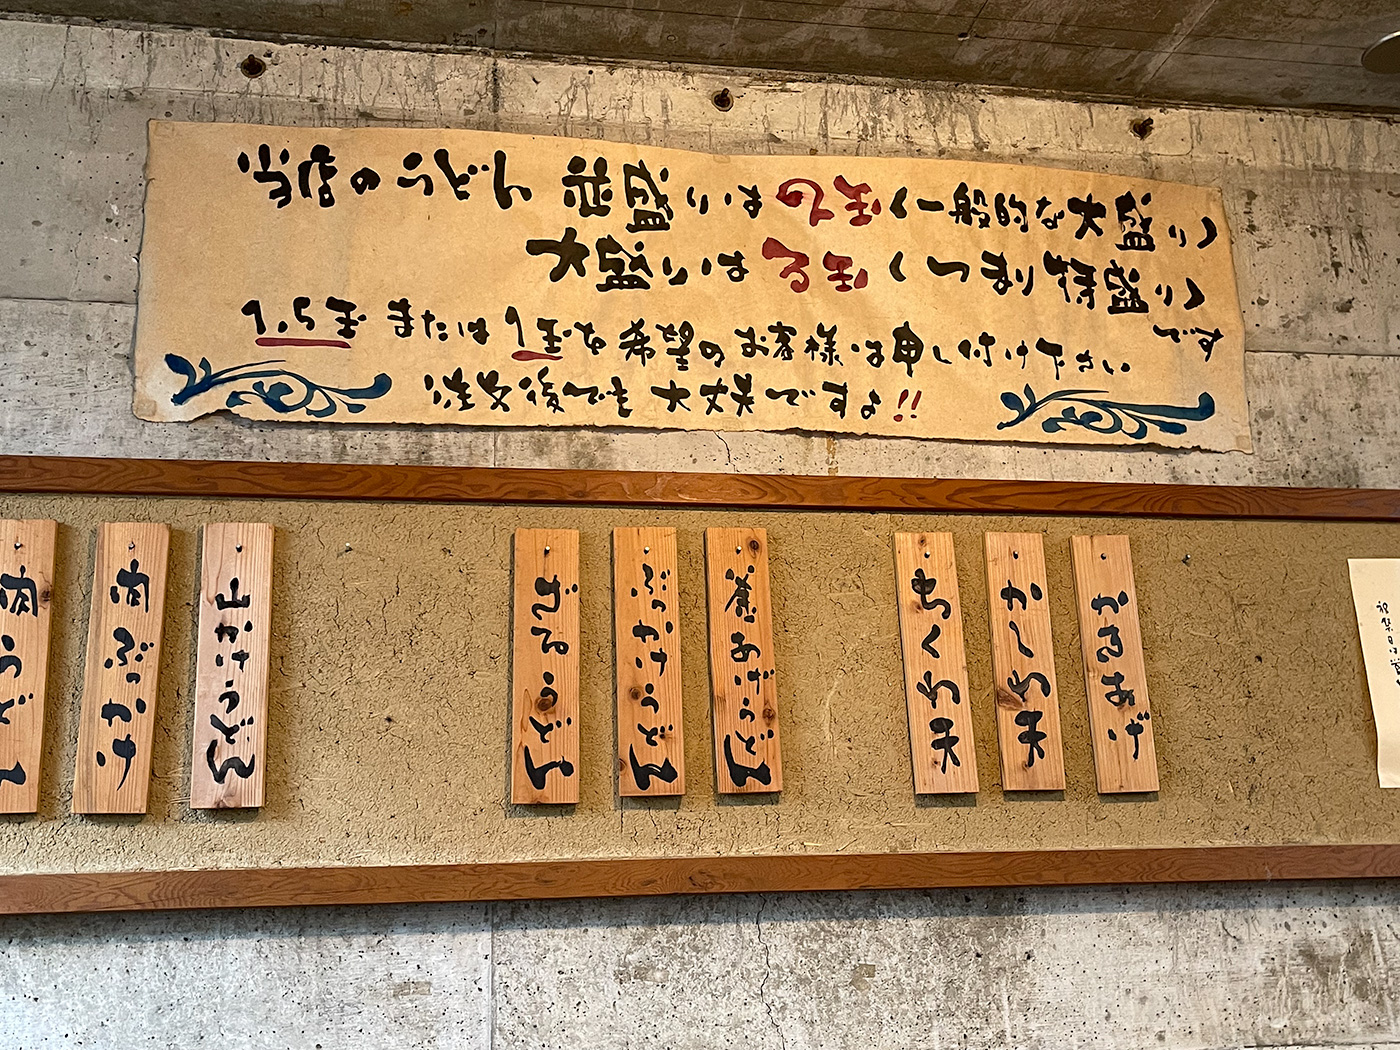 当店の うどん 並盛りは 2玉 (一般的な大盛り)
大盛りは 3玉 (つまり 特盛り)
です
1.5玉 または 1玉を 希望のお客様は申し付け下さい
注文後でも 大丈夫ですよ!!
かきあげ
かしわ天
ちくわ天
釜あげうどん
ぶっかけうどん
ざるうどん
山かけうどん
肉ぶっかけ
肉うどん